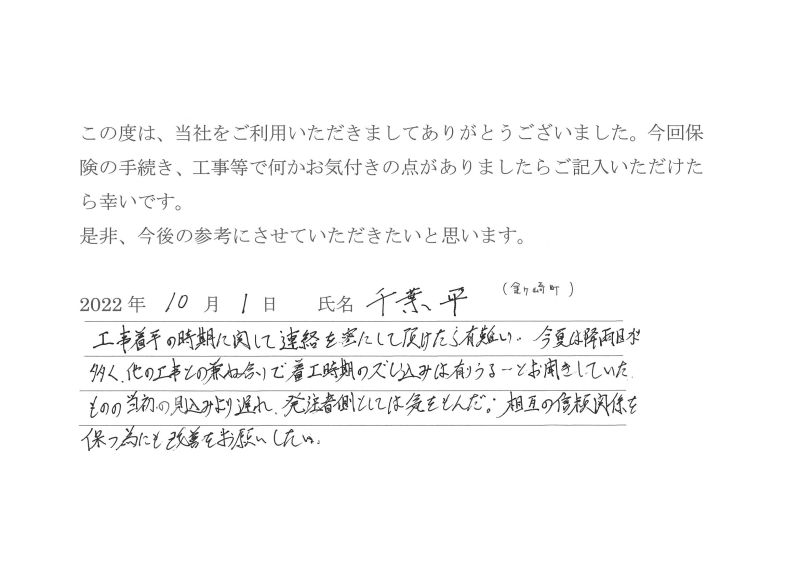 この度は、当社をご利用いただきましてありがとうございました。今回保
険の手続き、工事等で何かお気付きの点がありましたらご記入いただけた
ら幸いです。
是非、今後の参考にさせていただきたいと思います。
(金ヶ崎町)
2022年 10月 1日 氏名 千葉 平
工事着手の時期に関して連絡を密にして頂けたら有難い。今夏は降雨日が
多く、他の工事との兼ね合いで着工時期のズレ込みは有りうるーとお聞きしていた
ものの当初の見込みより遅れ、発注者側としては気をもんだ。相互の信頼関係を
保つ為にも改善をお願いしたい。